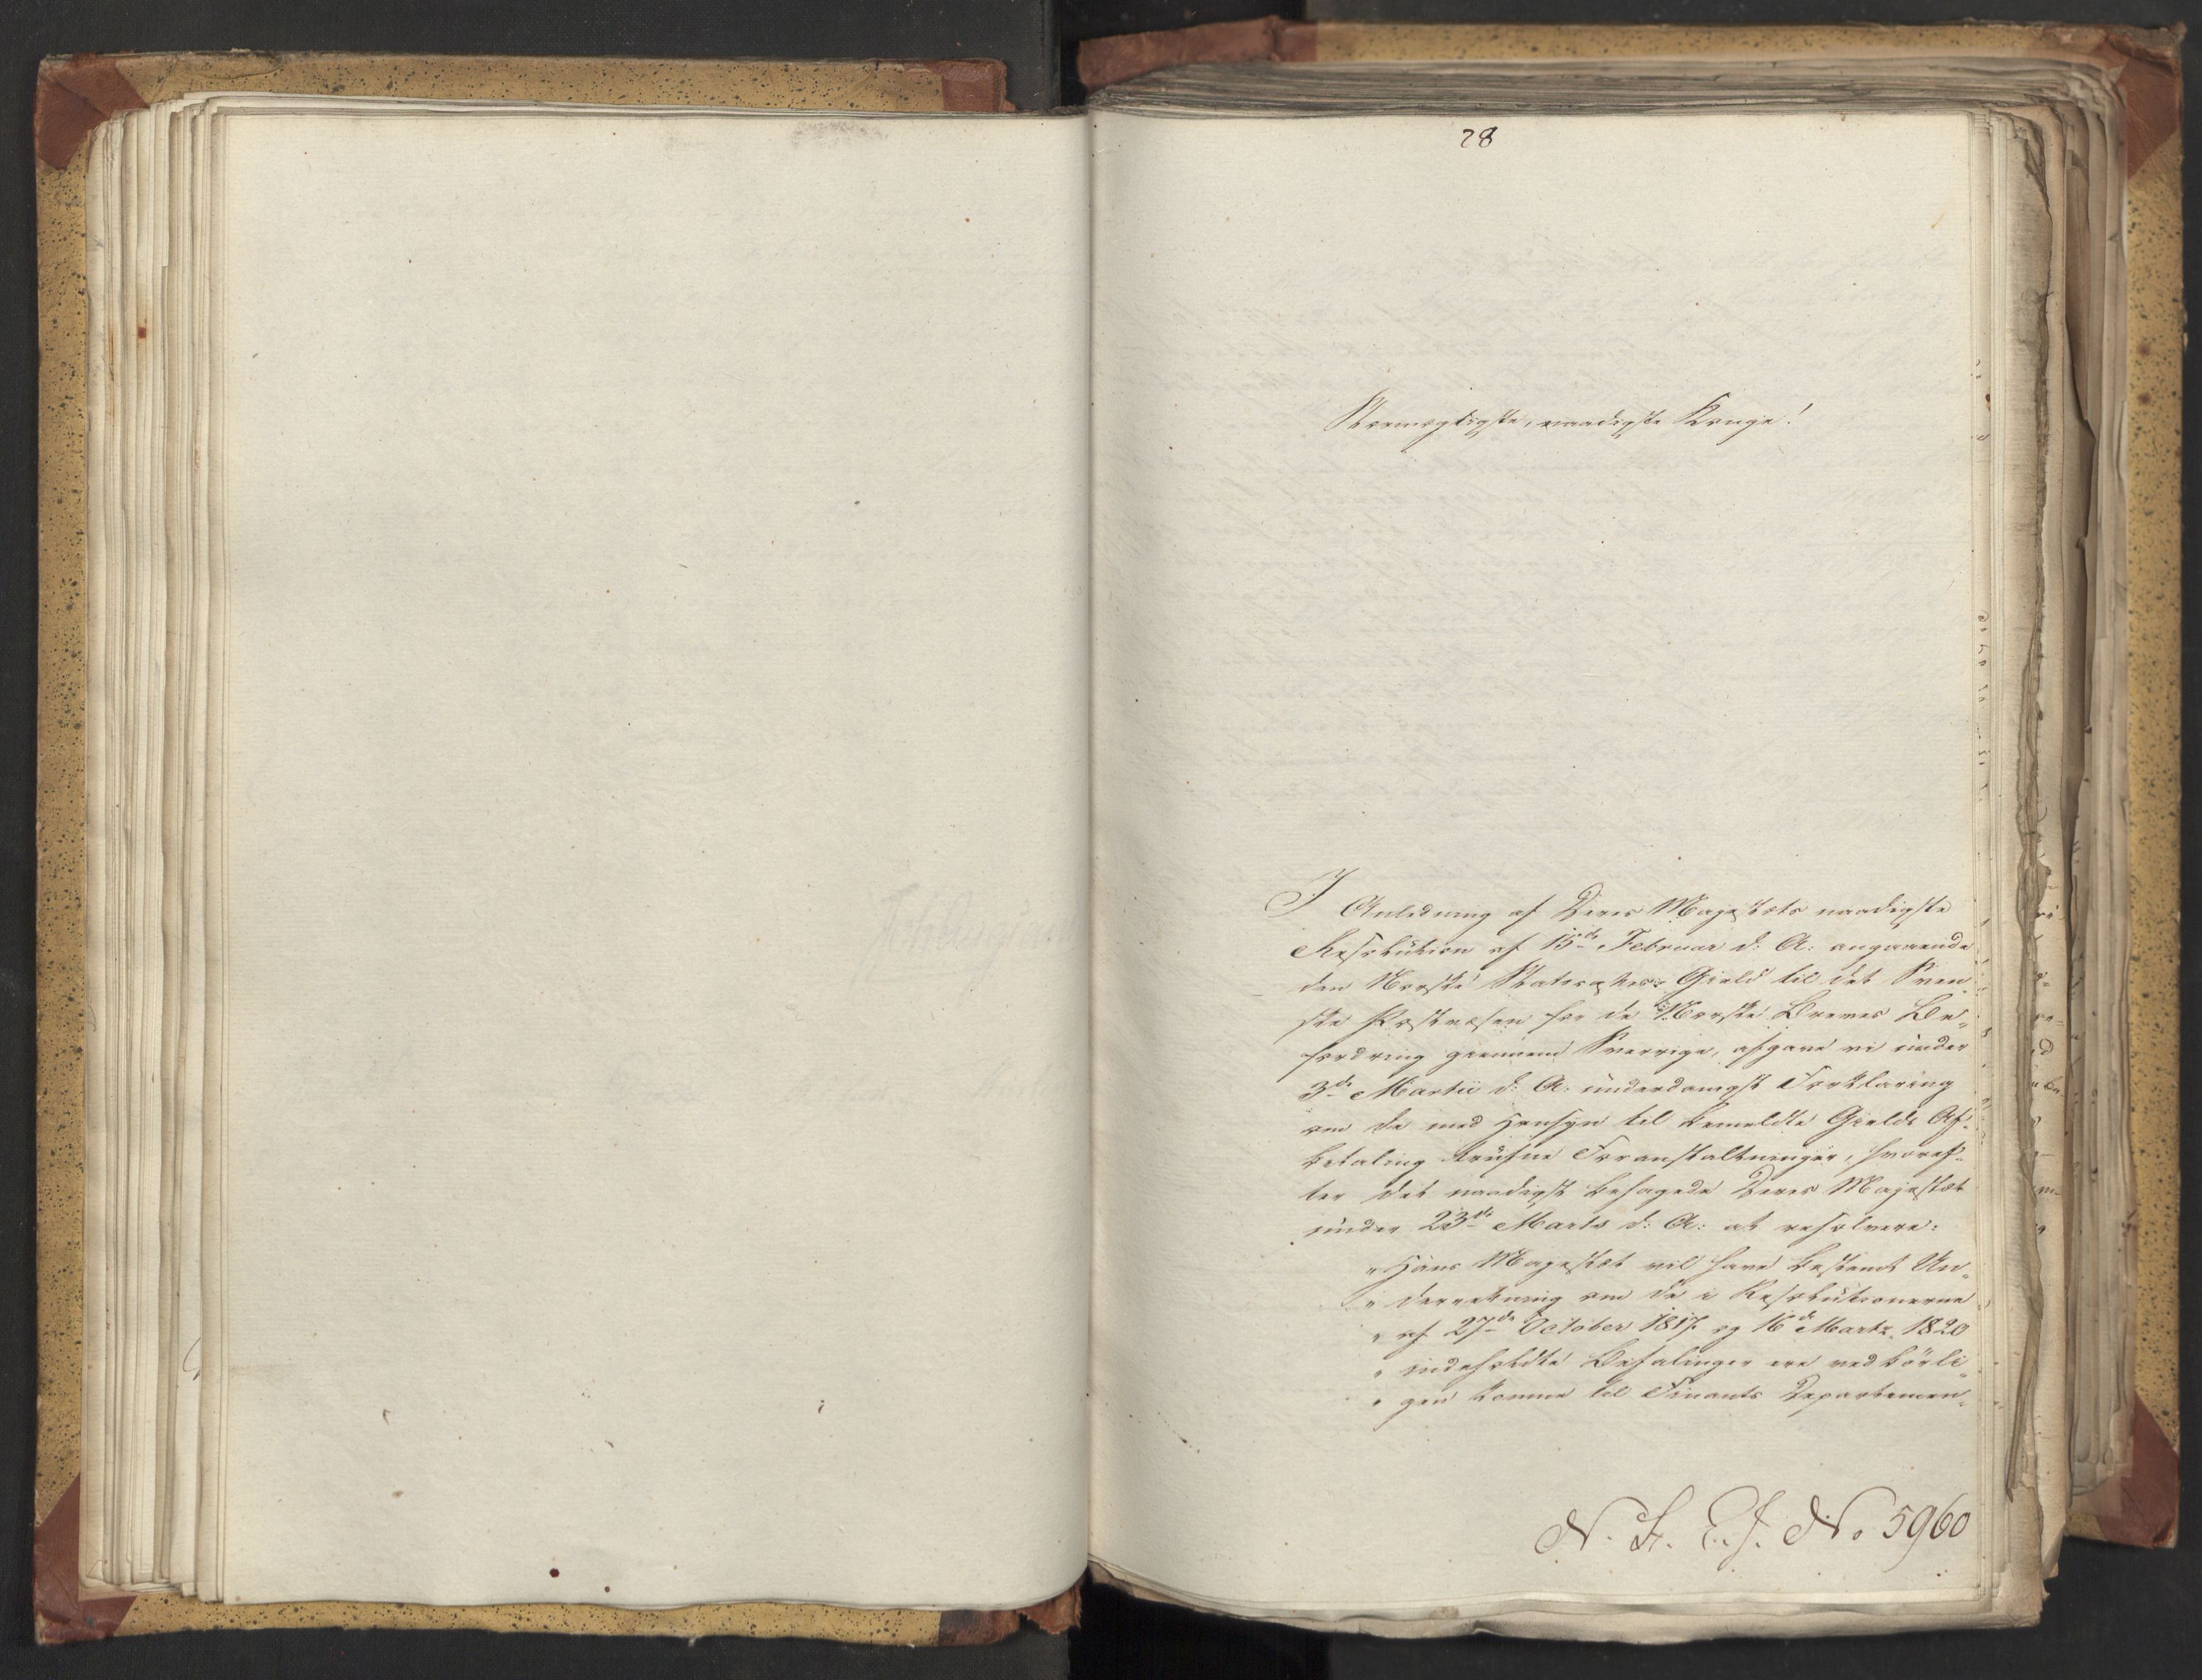 28
Stormægtigste, naadigste Konge!
I Anledning af Deres Majestæts naadigste
Resolution af 15de Februar d: A: angaaende
den Norske Statscasses Gield til det Sven„
ske Postvæsen for de Norske Breves Be„
fordring giennem Sverrige, afgave vi under
3de Martii d: A: underdanigst Forklaring
om de med Hensyn til bemeldte Gields Af„
betaling trufne Foranstaltninger, hvoref„
ter det naadigst behagede Deres Majestæt
under 23de Marts d: A: at resolvere:
„Hans Majestæt vil have bestemt Un„
„derretning om de i Resolutionerne
„af 27de October 1817 og 16de Marts 1820
„indeholdte Befalinger ere vedbörli„
„gen komne til Finants Departemen„
N. F. E. J. No 5960